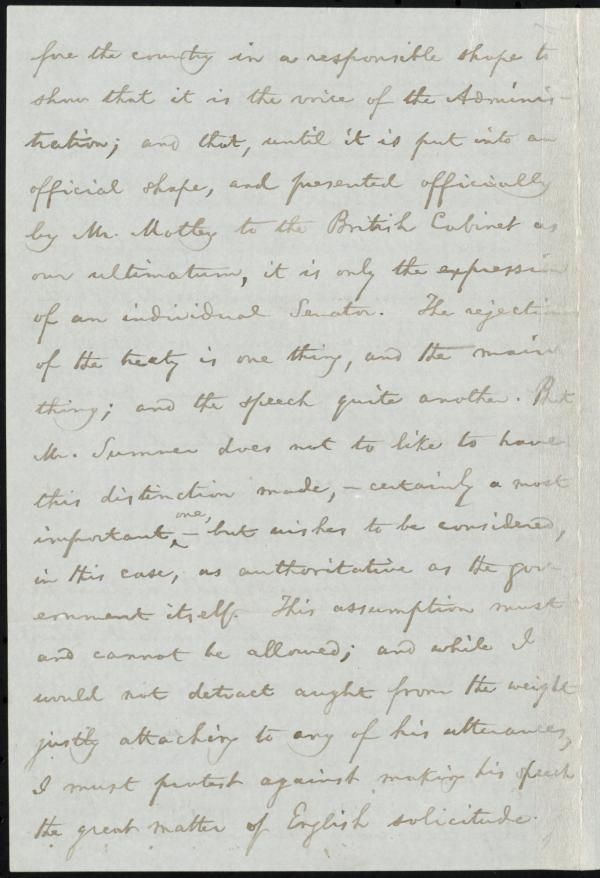 fore the country in a responsible shape to
show that it is the voice of the Adminis-
tration; and that, until it is put into an
official shape, and presented officially
by Mr. Motley to the British Cabinet as
our ultimatum, it is only the expression
of an individual Senator. The rejection
of the treaty is one thing, and the main
thing; and the speech quite another. But
Mr. Sumner does not to like to have
this distinction made, - certainly a most
important one, - but wishes to be considered,
in this case, as authoritative as the gov-
ernment itself. This assumption must
and cannot be allowed; and while I
would not detract aught from the weight
justly attaching to any of his utterances,
I must protest against making his speech
the great matter of English solicitude.